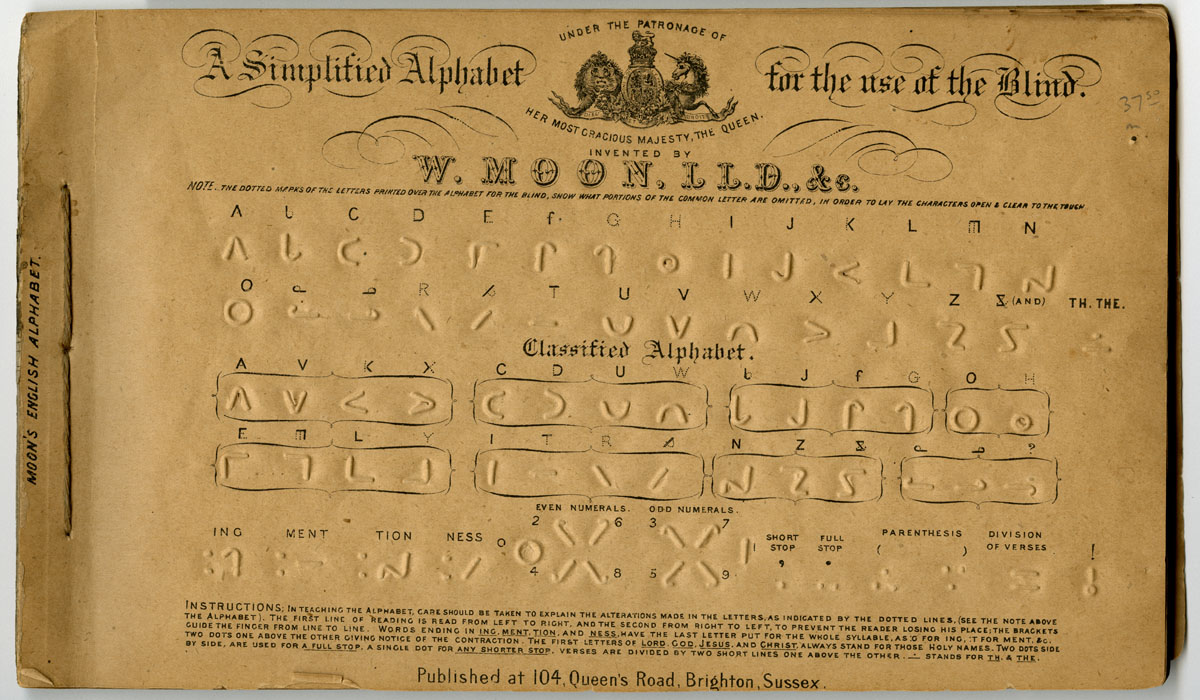 UNDER THE PATRONAGE OF
A Simplified Alphabet for the use of the Blind.
HER MOST GRACIOUS MAJESTY, THE QUEEN.
INVENTED BY
W. MOON, LL.D., &c.
NOTE. THE DOTTED MARKS OF THE LETTERS PRINTED OVER THE ALPHABET FOR THE BLIND, SHOW WHAT PORTIONS OF THE COMMON LETTER ARE OMITTED, IN ORDER TO LAY THE CHARACTERS OPEN & CLEAR TO THE TOUCH
A b C D E f G H I J K L M N
O P Q R S T U V W X Y Z & (AND) TH. THE.
Classified Alphabet.
A V K X C D U W b J f G O H
E M L Y I T R S N Z & P Q ?
EVEN NUMERALS. ODD NUMERALS.
2 6 3 7
ING MENT TION NESS 0 1 SHORT STOP , FULL STOP . PARENTHESIS ( ) DIVISION OF VERSES !
4 8 5 9
INSTRUCTIONS; IN TEACHING THE ALPHABET, CARE SHOULD BE TAKEN TO EXPLAIN THE ALTERATIONS MADE IN THE LETTERS, AS INDICATED BY THE DOTTED LINES, (SEE THE NOTE ABOVE
THE ALPHABET). THE FIRST LINE OF READING IS READ FROM LEFT TO RIGHT, AND THE SECOND FROM RIGHT TO LEFT, TO PREVENT THE READER LOSING HIS PLACE; THE BRACKETS
GUIDE THE FINGER FROM LINE TO LINE. WORDS ENDING IN ING, MENT, TION, AND NESS, HAVE THE LAST LETTER PUT FOR THE WHOLE SYLLABLE, AS :G FOR ING, :T FOR MENT, &c.
TWO DOTS ONE ABOVE THE OTHER GIVING NOTICE OF THE CONTRACTION. THE FIRST LETTERS OF LORD, GOD, JESUS, AND CHRIST, ALWAYS STAND FOR THOSE HOLY NAMES. TWO DOTS SIDE
BY SIDE, ARE USED FOR A FULL STOP, A SINGLE DOT FOR ANY SHORTER STOP. VERSES ARE DIVIDED BY TWO SHORT LINES ONE ABOVE THE OTHER. ∸ STANDS FOR TH. & THE.
Published at 104, Queen's Road, Brighton, Sussex.
MOON'S ENGLISH ALPHABET.
37 50